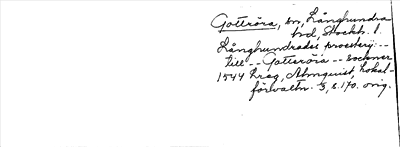 Gottröra, sn, Långhundra
hd, Stockh. l.
Långhundrades prosterij --
till -- Gotteröra -- sochner
1544 Lreg, Almquist, Lokal-
förvaltn. 3, s. 170. orig.